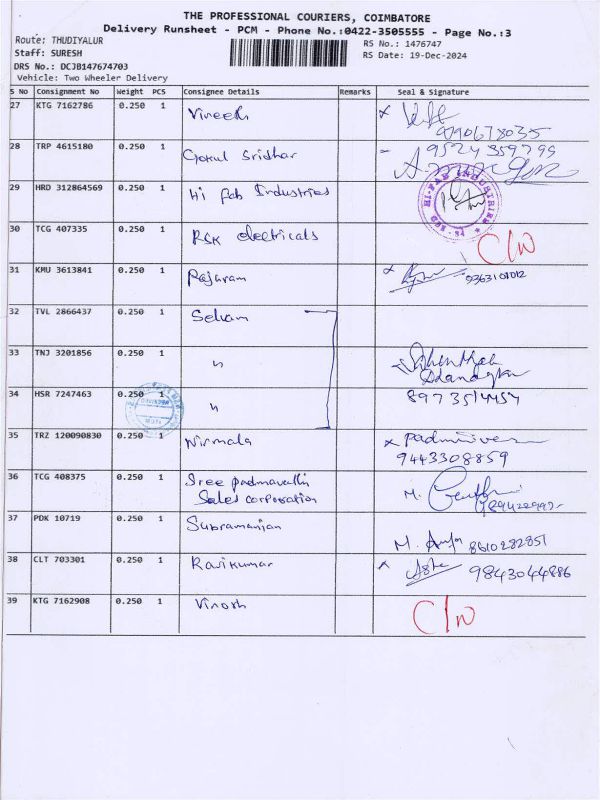 THE PROFESSIONAL COURIERS, COIMBATORE
Delivery Runsheet - PCM - Phone No.:0422-3505555 - Page No.:3
Route: THUDIYALUR
RS No.: 1476747
Staff: SURESH
RS Date: 19-Dec-2024
DRS No.: DCJB147674703
Vehicle: Two Wheeler Delivery
S No Consignment No Weight PCS Consignee Details Remarks Seal & Signature
27 KTG 7162786 0.250 1 Vineeth
9790678035
28 TRP 4615180 0.250 1 Gokul Sridhar 9524359799
29 HRD 312864569 0.250 1 Hi fab Industries
HI-FAB INDUSTRIES
30 TCG 407335 0.250 1 RSK electricals C/W
31 KMU 3613841 0.250 1 Rajaram 9363101012
32 TVL 2866437 0.250 1 Selvam
33 TNJ 3201856 0.250 1 "
34 HSR 7247463 0.250 1 "
35 TRZ 120090830 0.250 1 Nirmala
9443308859
36 TCG 408375 0.250 1 Sree padmavathi
Sales corporation M.
37 PDK 10719 0.250 1 Subramanian
M. 8610282851
38 CLT 703301 0.250 1 Ravikumar 9843044886
39 KTG 7162908 0.250 1 Vinosh C/W